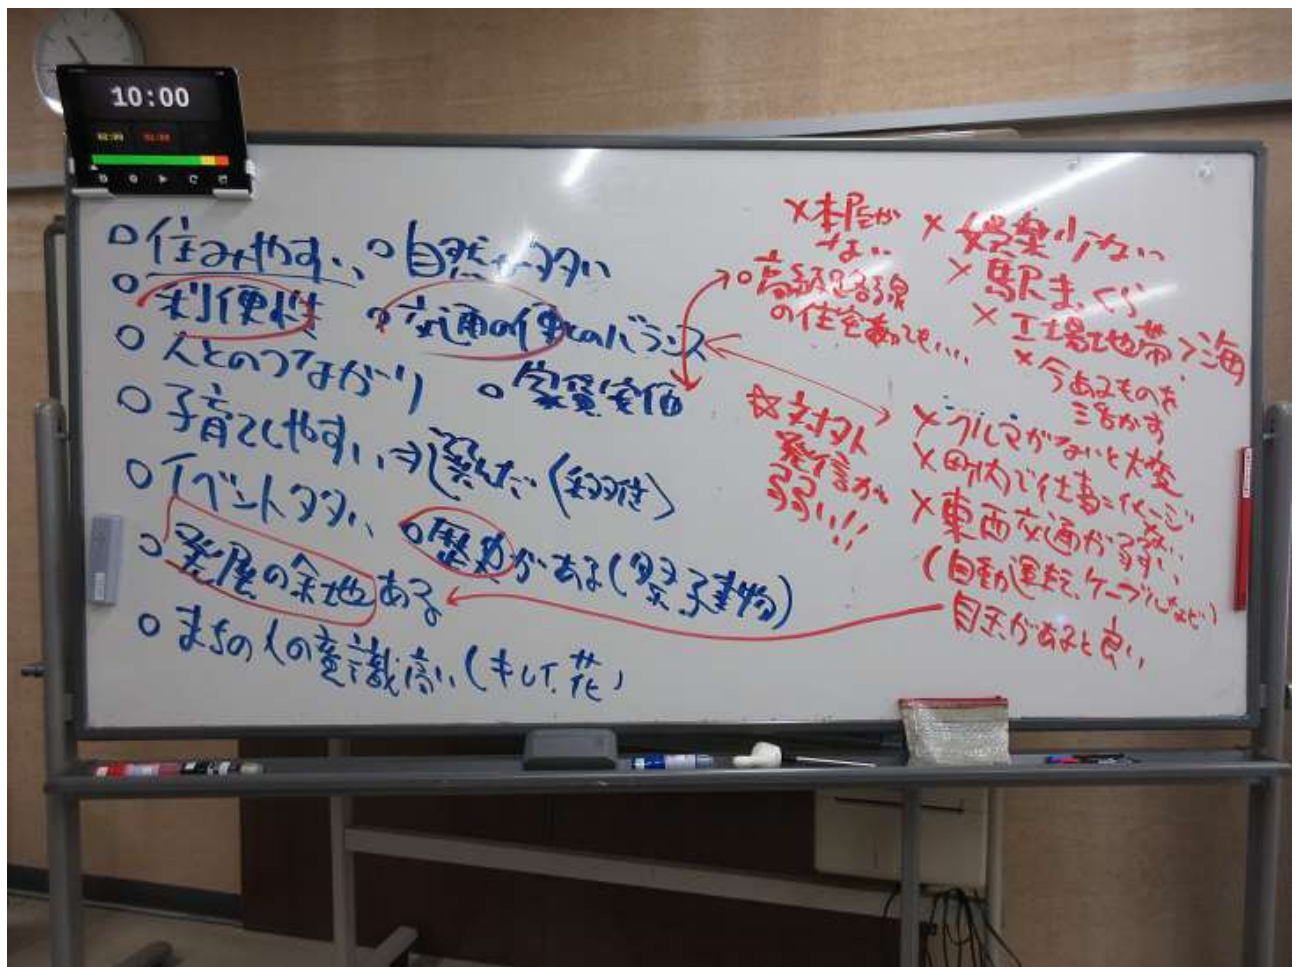 10:00
○住みやすい
○自然が多い
○利便性
○交通の便とのバランス
○人とのつながり
○家賃安価
○子育てしやすい⇒選んだ(移住)
○イベント多い
○歴史がある(祭り、建物)
○発展の余地ある
○まちの人の意識高い(キレイ、花)
×本屋が
ない
○高級路線
の住宅街でも…
☆対外
発信が
弱い!!
×娯楽少ない
×駅まっくら
×工場地帯、海
×今あるものを
活かす
×クルマがないと大変
×町内で仕事=イメージ
×東西交通が弱い
(自動運転、ケーブルなど)
目玉があると良い